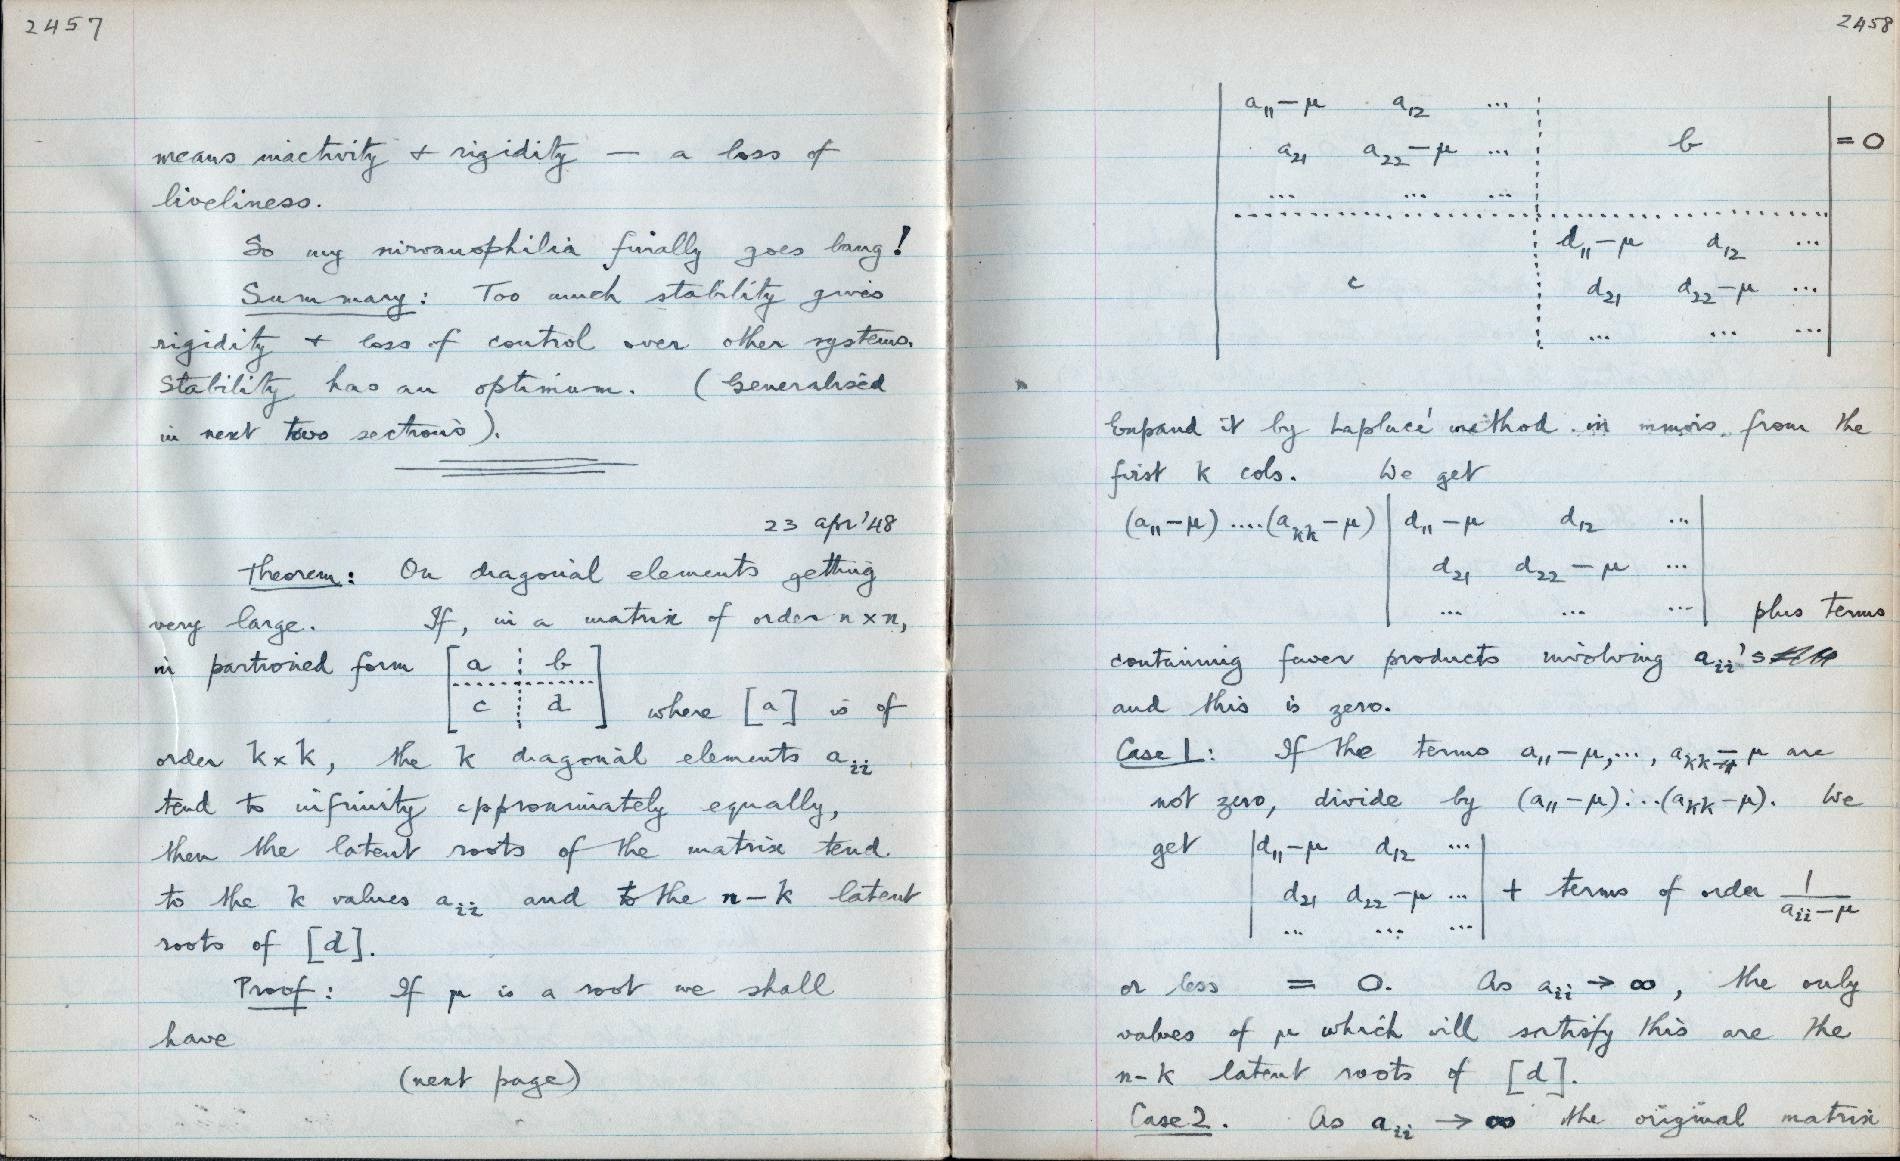 2457
means inactivity + rigidity — a loss of
liveliness.
So my nirvanophilia finally goes bang!
Summary: Too much stability gives
rigidity + loss of control over other systems.
Stability has an optimum. (Generalised
in next two sections).
23 Apr '48
Theorem: On diagonal elements getting
very large. If, in a matrix of order n×n,
in partioned form [a b
c d] where [a] is of
order k×k, the k diagonal elements aᵢᵢ
tend to infinity approximately equally,
then the latent roots of the matrix tend
to the k values aᵢᵢ and to the n–k latent
roots of [d].
Proof: If μ is a root we shall
have
(next page)
2458
a₁₁–μ a₁₂ ...
a₂₁ a₂₂–μ ... b = 0
... ... ...
d₁₁–μ d₁₂ ...
c d₂₁ d₂₂–μ ...
... ... ...
Expand it by Laplace' method in minors from the
first k cols. We get
(a₁₁–μ)....(aₖₖ–μ) | d₁₁–μ d₁₂ ...
d₂₁ d₂₂–μ ...
... ... ... | plus terms
containing fewer products involving aᵢᵢ's
and this is zero.
Case 1: If the terms a₁₁–μ, ..., aₖₖ–μ are
not zero, divide by (a₁₁–μ)...(aₖₖ–μ). We
get | d₁₁–μ d₁₂ ...
d₂₁ d₂₂–μ ... | + terms of order 1/(aᵢᵢ–μ)
... ... ...
or less = 0. As aᵢᵢ → ∞, the only
values of μ which will satisfy this are the
n–k latent roots of [d].
Case 2. As aᵢᵢ → ∞ the original matrix